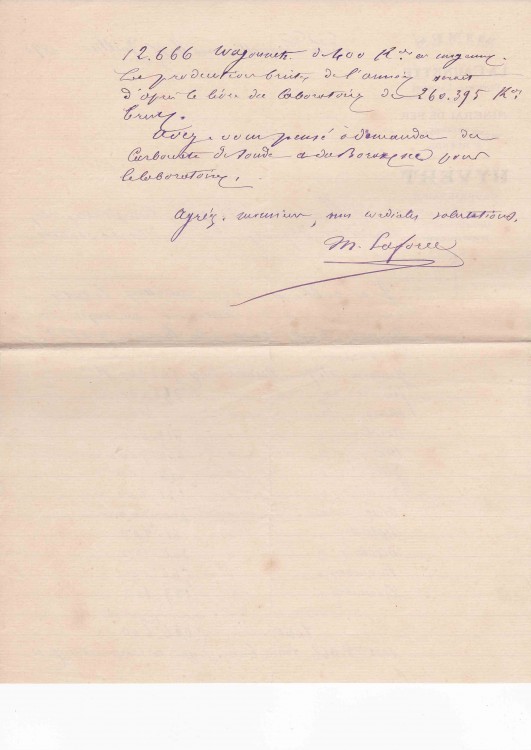 12.666 Wagonnets de 400 Kos en moyenne.
La production brute de l'année serait
d'après le livre du laboratoire de 260.395 Kos
brut.
Avez-vous pensé à demander du
Carbonate de Soude et du pour
le laboratoire.
Agréz, monsieur, nos cordiales salutations.
M. Laforce
HYVERT